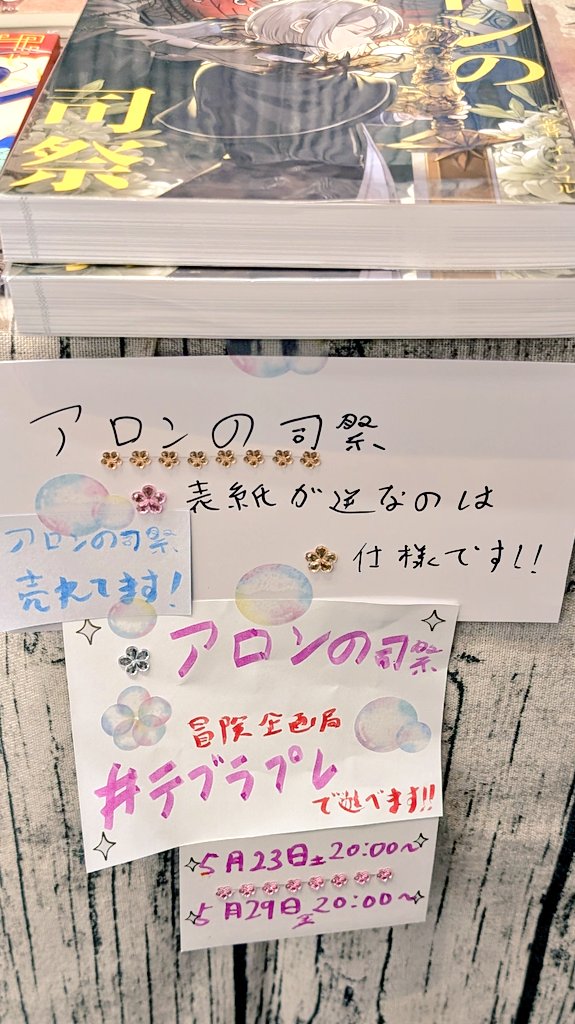 ロンの
司祭
アロンの司祭
表紙が逆なのは
仕様です!!
アロンの司祭
売れてます!
アロンの司祭
冒険企画局
#テブラプレ
で遊べます!!
5月23日土20:00～
5月29日金20:00～